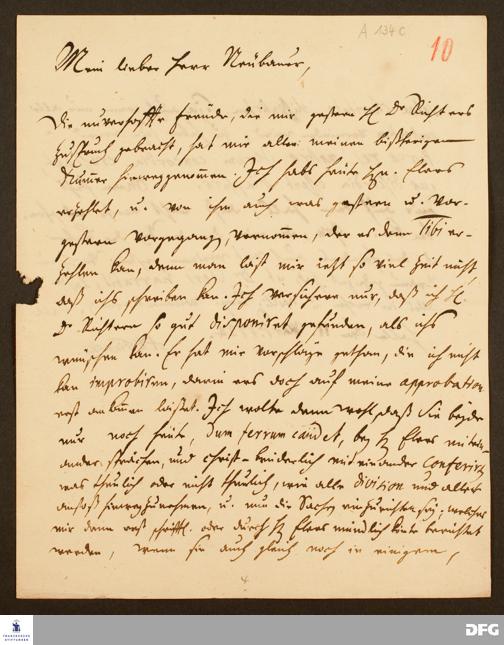 A 134 c
10
Mein lieber Herr Neubauer,
Die unverhoffte Freude, die mir gestern H. Dr Richters
Zuspruch gebracht, hat mir allen meinen bißherigen
Kummer hinweggenommen. Ich habs heute Hn. Elers
erzehlet, u. von ihm auch was gestern u. vor-
gestern vorgegangen, vernommen, der es denn tibi er-
zehlen kan, denn man läst mir itzt so viel Zeit nicht
daß ichs schreiben kan. Ich versichere nur, daß ich H.
Dr. Richtern so gut disponiret gefunden, als ichs
wünschen kan. Er hat mir Vorschläge gethan, die ich nicht
kan improbiren, darin ers doch auf meine approbation
erst ankommen lässet. Ich wolte denn wohl, daß Sie beyde
nur noch heute, dum ferrum candet, bey H Elers mitein-
ander sprächen, und christ-brüderlich miteinander conferirten
was thulich oder nicht thulich, wie alle division und aller
anstoß hinwegzunehmen, u. nun die Sache einzurichten sey; welches
mir denn erst schrifftl. oder durch H Elers mündlich könte berichtet
werden, wenn sie auch gleich noch in einigem,
4
FRANCKESCHE
STIFTUNGEN
DFG